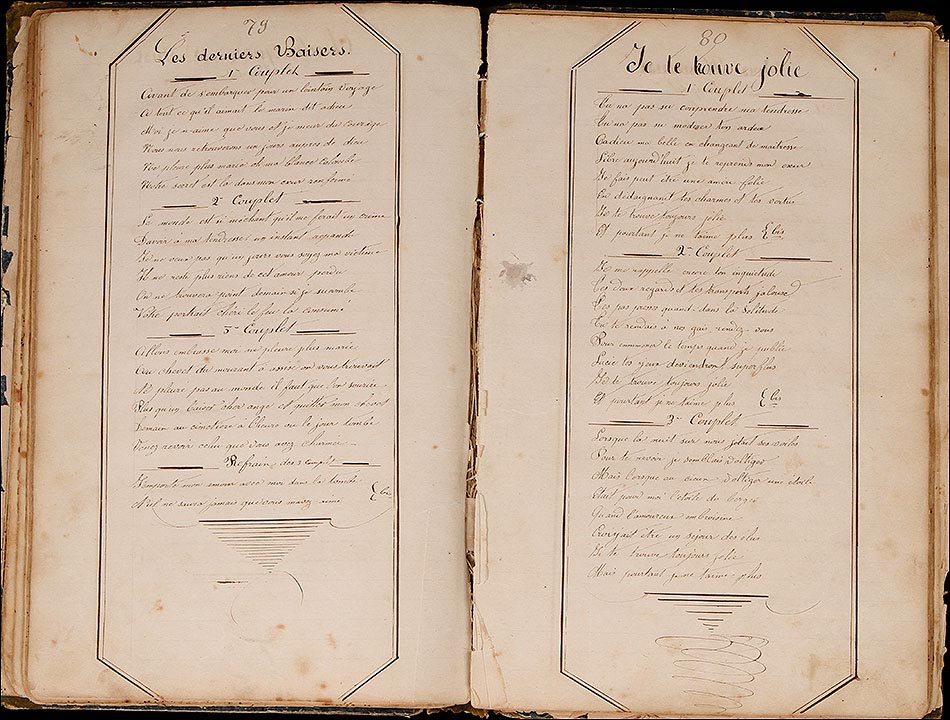 79
Les derniers Baisers.
1er Couplet
Avant de s'embarquer pour un lointain voyage
A tout ce qu'il aimait le marin dit adieu
Moi je n'aime que vous et je meurs du courage
Nous nous retrouverons un jours aupres de dieu
Ne pleure plus marie oh ma blance colombe
Notre secret est la dans mon cœur renfermé
2e Couplet
Le monde est si méchant qu'il me ferait un crime
D'avoir à ma tendresse un instant
Je ne veux pas qu'un jours vous soyez ma victime
Il ne reste plus riens de cet amour perdu
On ne trouvera point demain si je sucombe
Votre portrait chéri le feu la consumé
3me Couplet
Allons embrasse moi ne pleure plus marie
Au chevet du mourant assise on vous
Ne pleure pas au monde il faut que l'on sourie
Plus qu'un baiser cher ange et mon chevet
Demain au cimetière a l'heure ou le jour tombe
Venez revoir celui que vous avez charmée
Refrain des 3 Couplet
J'emporte mon amour avec moi dans la tombe
Nul ne saura jamais que vous mavez aimé
bis
80
Je te trouve jolie
1 Couplet
Tu na pas su comprendre ma tendresse
Tu na pas su moderer ton ardeur
Cardieu ma belle en changeant de maitresse
Libre aujourd'huit je te reprends mon cœur
Je fais peut être une amere folie
En dedaignant tes charmes et tes vertus
Je te trouve toujours jolie
Et pourtant je ne taime plus
bis
2me Couplet
Je me rappelle encore ton inquietude
Tes doux regards et tes transports jalouse
Tes pas presses quand dans la solitude
Tu te rendais a nos gais rendez-vous
Pour le temps quand je publie
Lucie tes jour deviendront superflus
Je te trouve toujours jolie
Et pourtant je ne taime plus
bis
3me Couplet
Lorsque la nuit sur nous jetait ses voiles
Pour te revoir je semblais
Mais lorsque au cieux une étoile
Cétait pour moi l'étoile du berger
Quand l'amoureux embroisine
Croyait être un sejour des élus
Je te trouve toujours jolie
Mais pourtant je ne taime plus